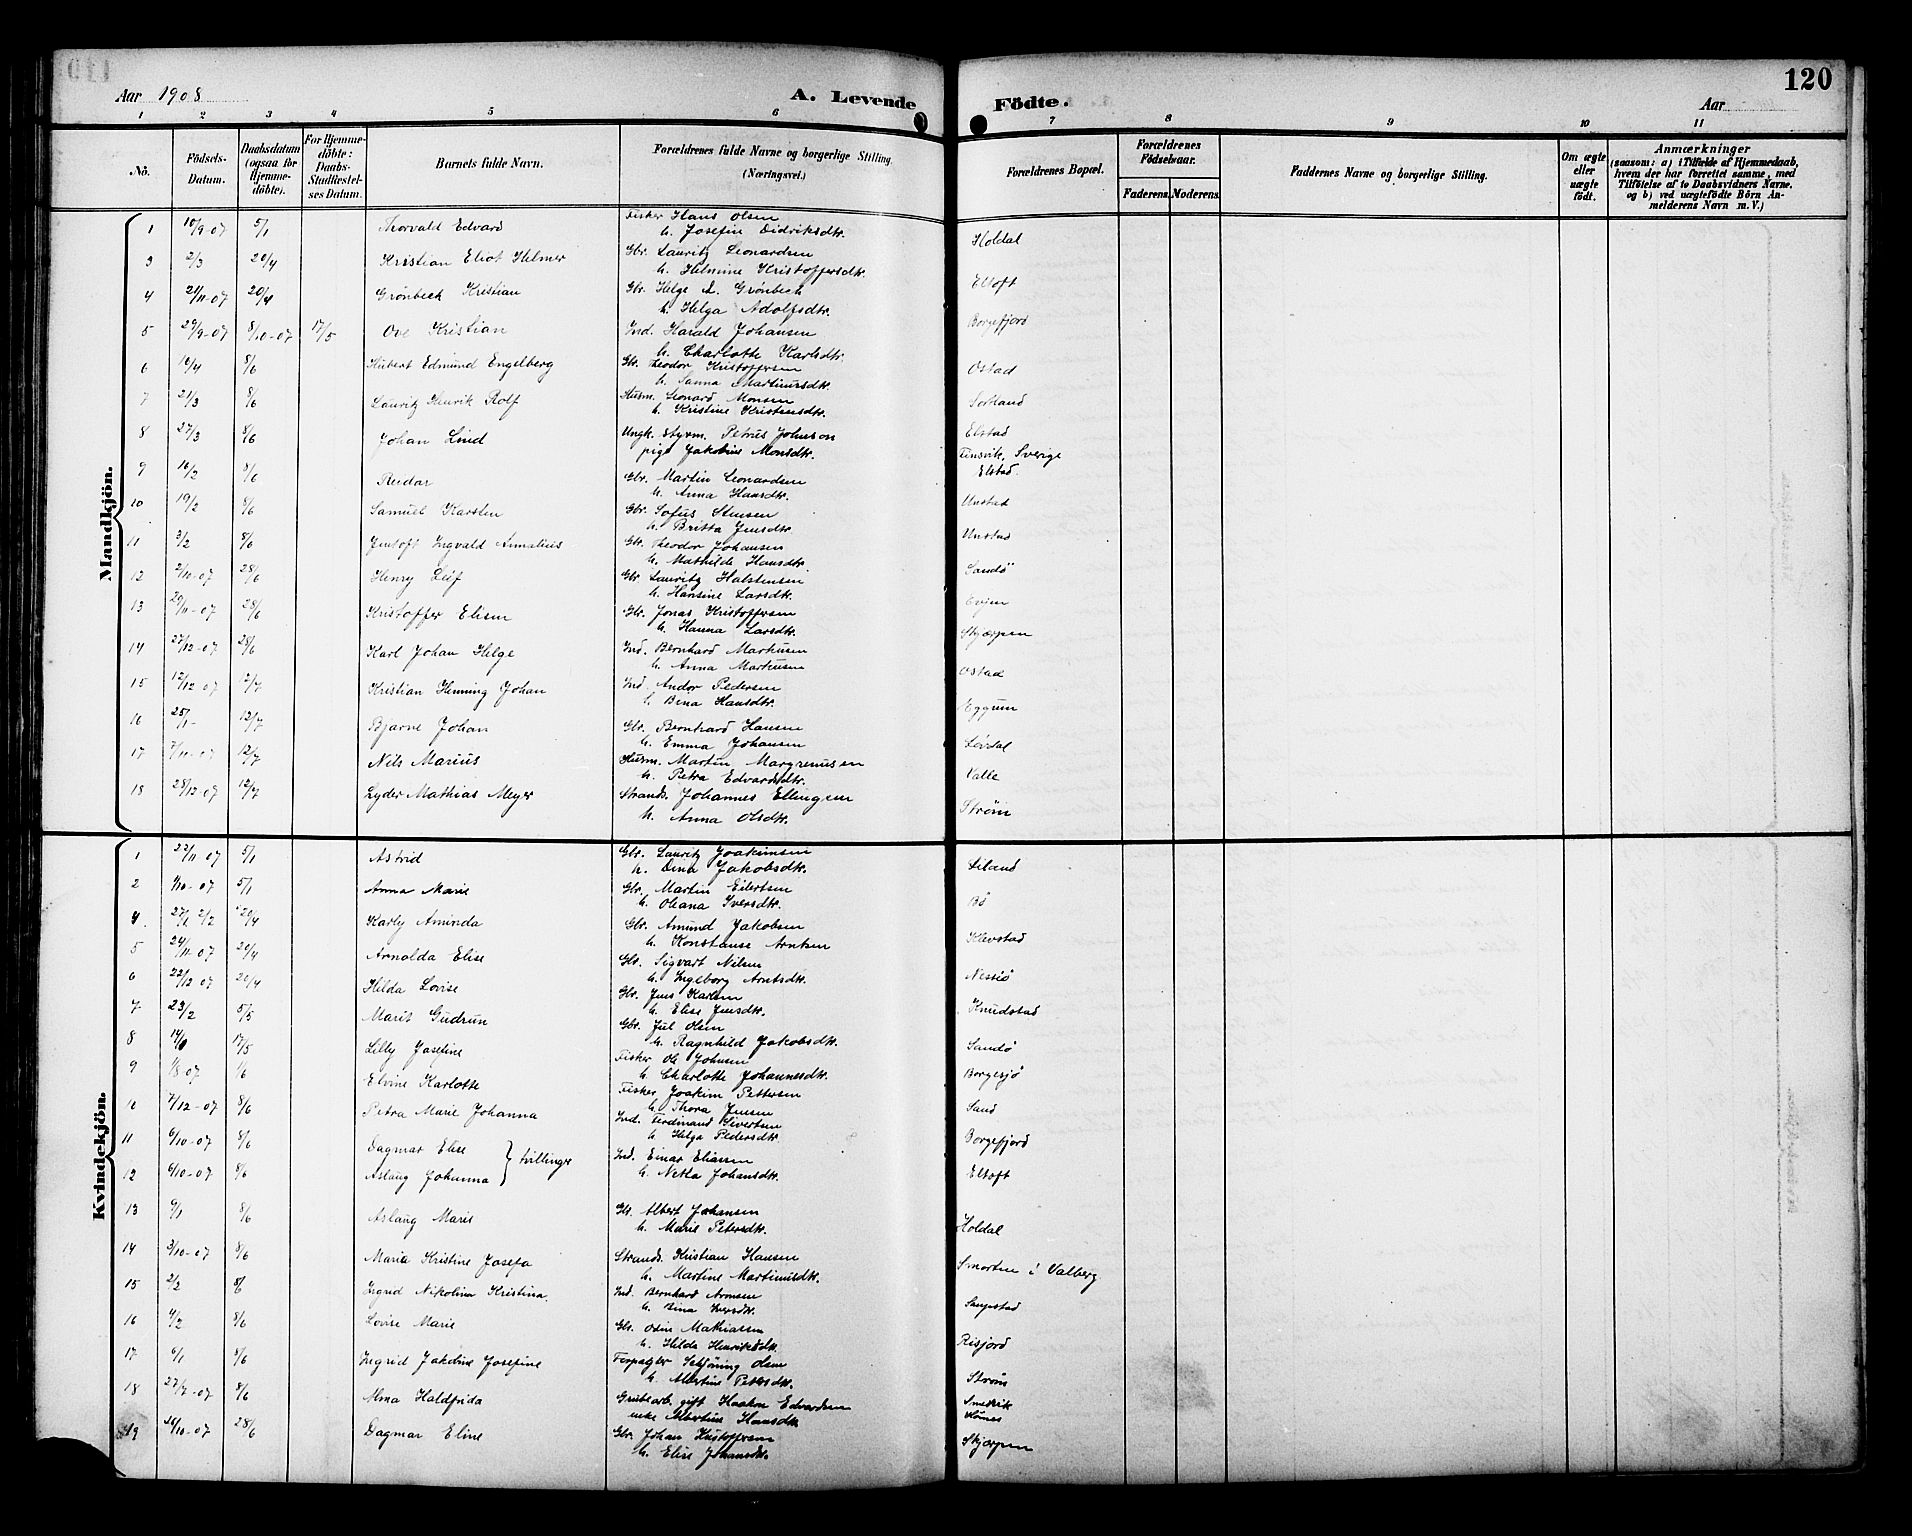 120
Aar 1908
A. Levende Födte.
Aar
1 2 3 4 5 6 7 8 9 10 11
No.
Födsels-Datum.
Daabsdatum (ogsaa for Hjemmedöbte).
For Hjemmedöbte: Daabs-Stadfæstelses Datum.
Barnets fulde Navn.
Forældrenes fulde Navne og borgerlige Stilling. (Næringsvei.)
Forældrenes Bopæl.
Forældrenes Födselsaar.
Faderens. Moderens.
Faddernes Navne og borgerlige Stilling.
Om ægte eller uægte födt.
Anmærkninger (saasom: a) i Tilfælde af Hjemmedaab, hvem der har forrettet samme, med Tilföielse af to Daabsvidners Navne. og b) ved uægtefödte Börn Anmelderens Navn m. V.)
Mandkjön.
1 10/9-07 5/1 Thorvald Edvard Fisker Hans Olsen Holdal
h. Josefine Didriksdtr.
3 2/3 20/4 Kristian Eliot Helmer Gbr. Lauritz Leonardsen Eltoft
h. Helmine Kristoffersdtr.
4 21/11-07 20/4 Grönbech Kristian Gbr. Helge A. Grønbech Borgefjord
h. Helga Adolfsdtr.
5 29/9-07 8/10-07 17/5 Ove Kristian Ind. Harald Johansen Ostad
h. Charlotte Karlsdtr.
6 10/4 8/6 Hubert Edmund Engelberg Gbr. Theodor Kristoffersen Sortland
h. Sanna Martinusdtr.
7 21/3 8/6 Lauritz Henrik Rolf Husm. Leonard Monsen Elstad
h. Kristine Kristensdtr.
8 27/3 8/6 Johan Lind Ungk. Styrm. Petrus Johnson Sverige
pige Jakobine Monsdtr. Elstad
9 16/2 8/6 Reidar Gbr. Martin Leonardsen Unstad
h. Anna Hansdtr.
10 19/2 8/6 Samuel Karsten Gbr. Sofus Stensen Unstad
h. Britta Jensdtr.
11 3/2 8/6 Jentoft Ingvald Annanius Gbr. Theodor Johansen Sandö
h. Mathilde Hansdtr.
12 2/10-07 28/6 Henry Leif Gbr. Lauritz Halstensen Evjen
h. Hansine Larsdtr.
13 29/11-07 28/6 Kristoffer Elisen Gbr. Jonas Kristoffersen Skjærpen
h. Hanna Larsdtr.
14 27/12-07 28/6 Karl Johan Helge Ind. Bernhard Markusen Ostad
h. Anna Markusen
15 12/12-07 12/7 Kristian Henning Johan Ind. Andor Pedersen Eggum
h. Bina Hansdtr.
16 25/1- 12/7 Bjarne Johan Gbr. Bernhard Hansen Lövdal
h. Emma Johansen
17 7/11-07 12/7 Nils Marius Husm. Martin Margrenusen Valle
h. Petra Edvardsdtr.
18 28/12-07 12/7 Lyder Mathias Meyer Strands. Johannes Ellingsen Ström
h. Anna Olsdtr.
Kvindekjön.
1 22/11-07 5/1 Astrid Gbr. Lauritz Joakimsen Liland
h. Dina Jakobsdtr.
2 1/10-07 5/1 Anna Marie Gbr. Martin Eilertsen Bö
h. Oliana Iversdtr.
4. 2/2 20/4 Karly Aminda Gbr. Amund Jakobsen Klevstad
h. Konstanse Arntsen
5 24/11-07 20/4 Arnolda Elise Gbr. Sigvart Nilsen Nessjö
h. Ingeborg Arntsdtr.
6 22/12-07 20/4 Hilda Lovise Gbr. Jens Karlsen Knudstad
h. Elise Jensdtr.
7 23/2 5/5 Marit Gudrun Gbr. Jul Olsen Sandö
h. Ragnhild Jakobsdtr.
8 17/5 Lilly Josefine Fisker Ole Johnsen Borgesjö
h. Charlotte Johannesdtr.
9 1/8-07 Elvine Karlotte Fisker Joakim Pettersen Sand
h. Thora Jensen
10 7/12-07 8/6 Petra Marie Johanna Ind. Ferdinand Sivertsen Borgefjord
h. Helga Pedersdtr.
11 6/10-07 8/6 Dagmar Elise } tvillinger Ind. Einar Eliassen Eltoft
12 6/10-07 8/6 Aslaug Johanna h. Netta Johansdtr.
13 9/1 8/6 Aslaug Marie Gbr. Albert Johansen Holdal
h. Marie Petersdtr.
14 3/10-07 8/6 Maria Kristine Josefa Strands. Kristian Hansen Smorten i Valberg
h. Martine Martinusdtr.
15 2/2 8/6 Ingrid Nikolina Kristina Ind. Bernhard Aronsen
h. Bina Iversdtr.
16 4/2 8/6 Lovise Marie Gbr. Odin Mathiassen Risjord
h. Hilda Henriksdtr.
17 6/1 8/6 Ingrid Jakobine Josefine Forpagter Schjöning Olsen Ström
h. Martine Petersdtr.
18 27/7-07 8/6 Alma Haldfrida Grubearb. gift Haakon Edvardsen
enke Albertine Hansdtr.
19 24/10-07 28/6 Dagmar Eline Gbr. Johan Kristoffersen Skjærpen
h. Elise Johansdtr.